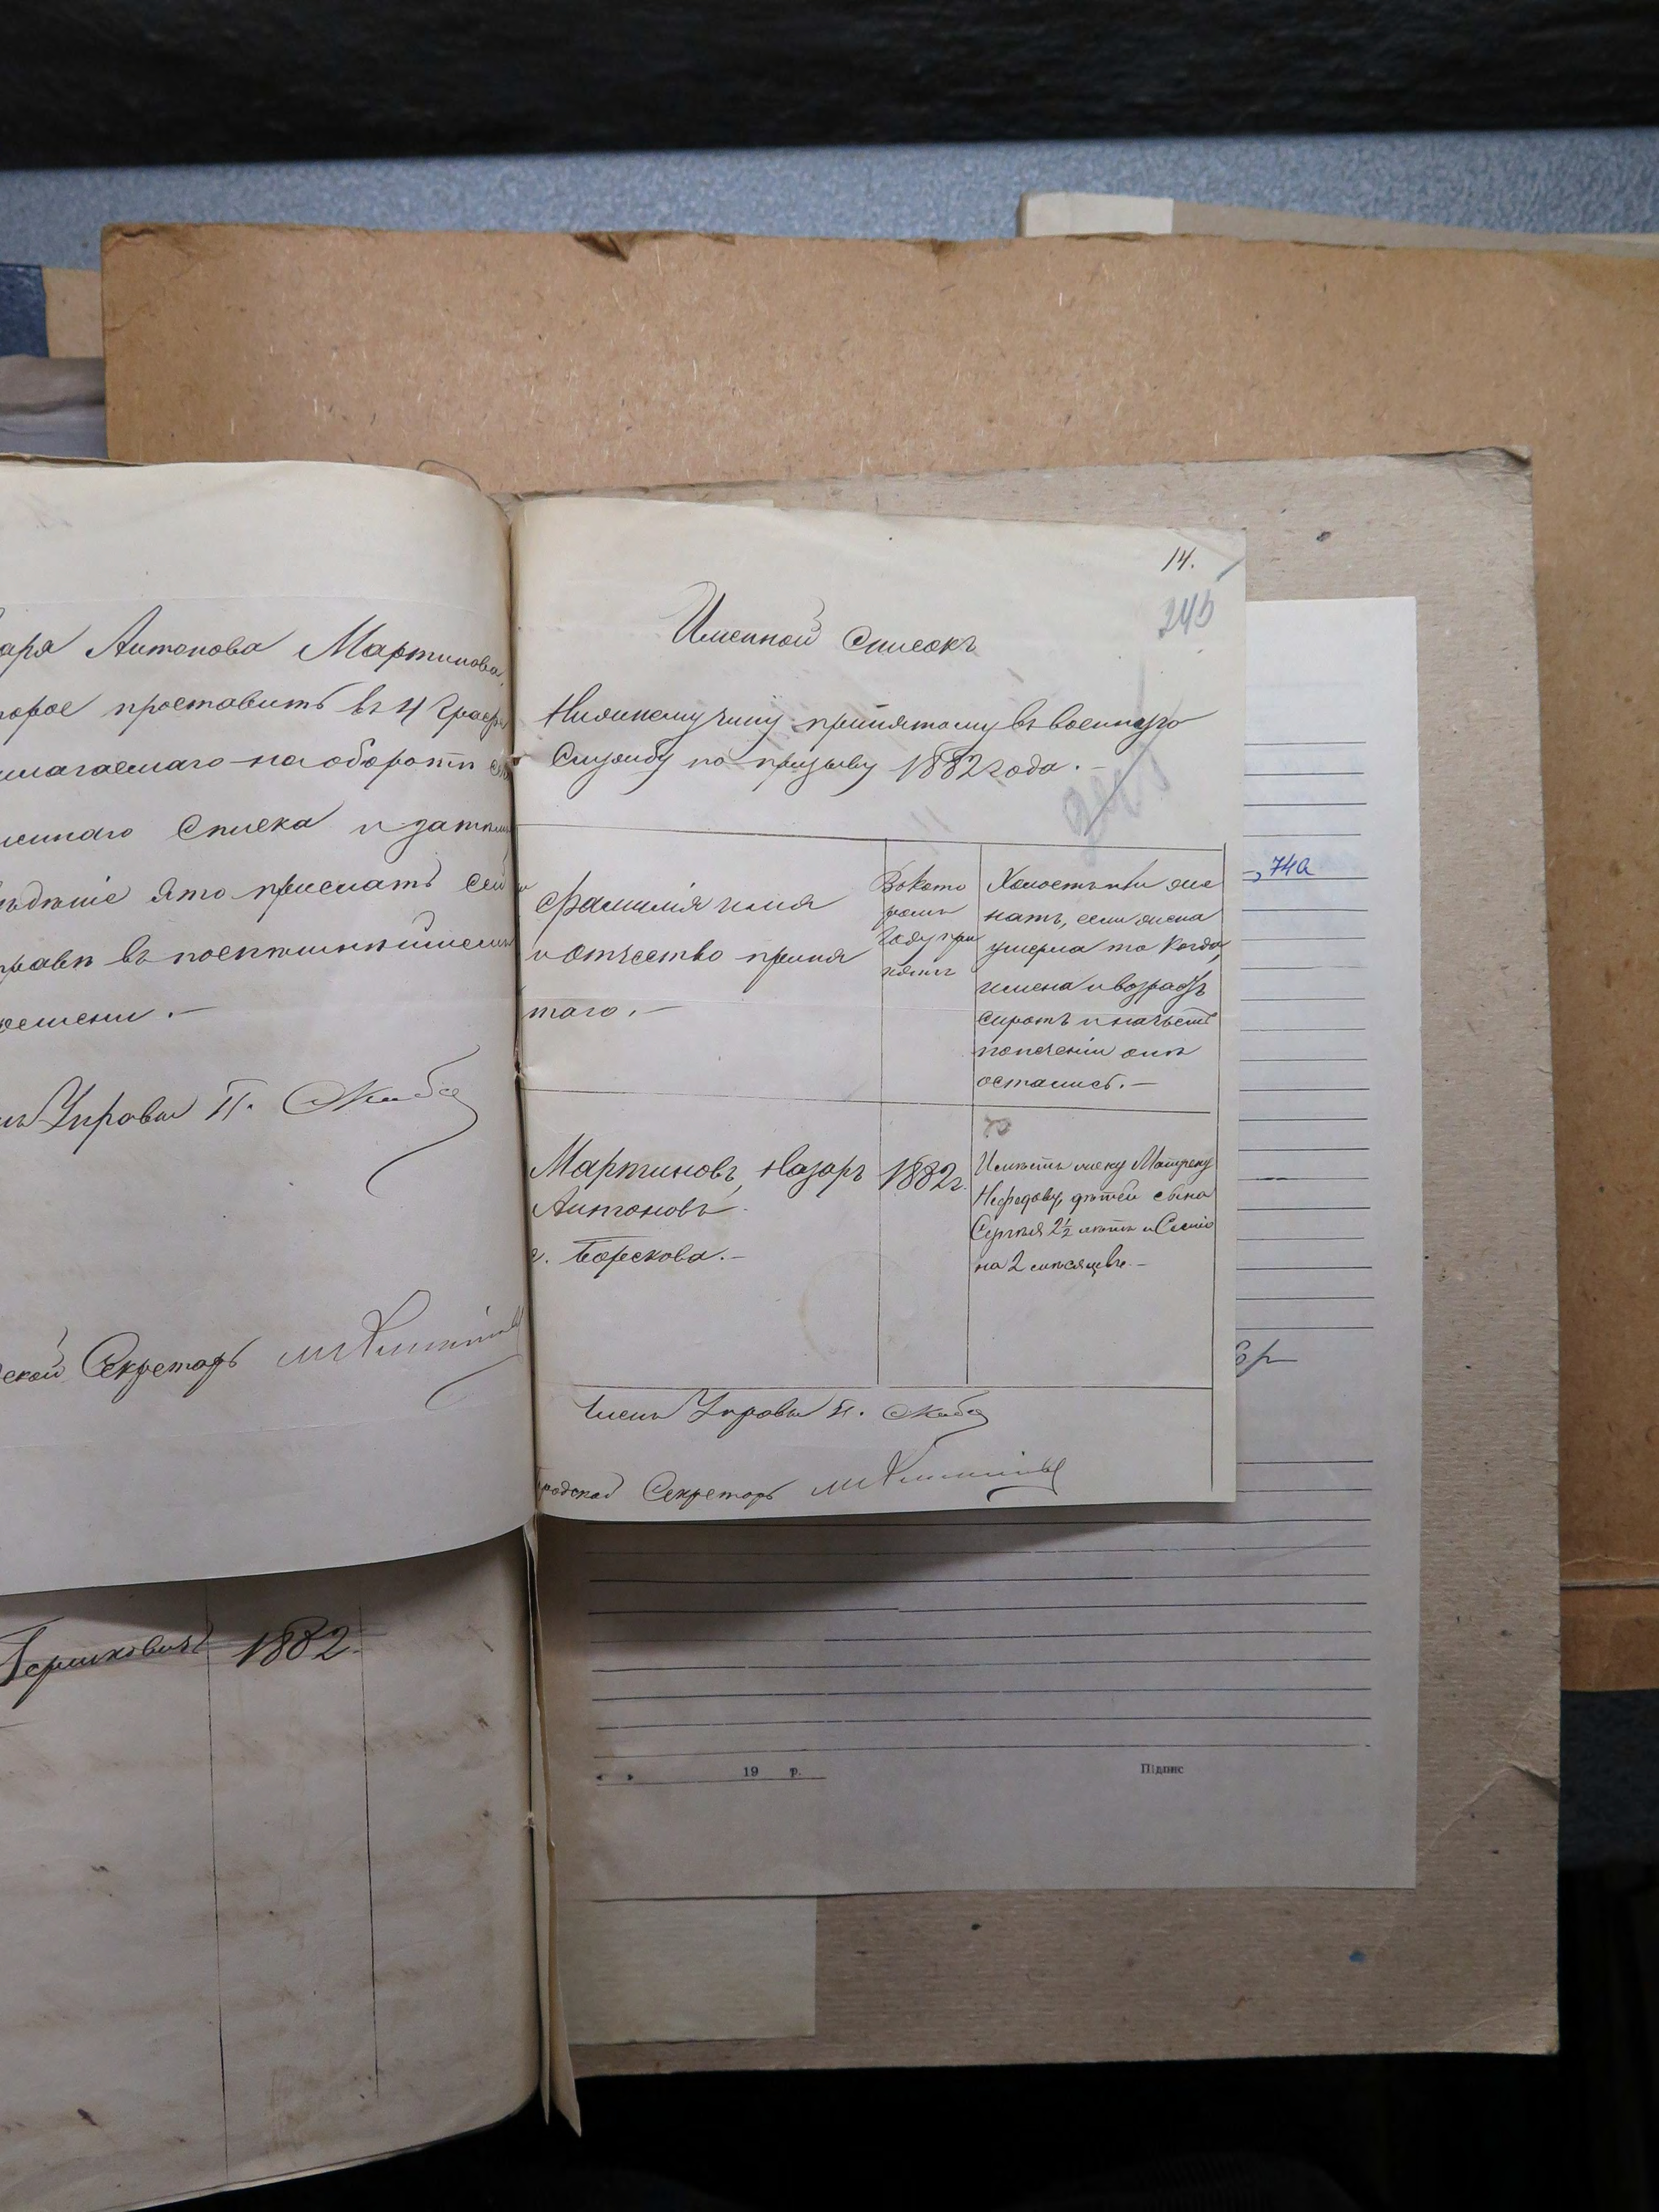 аря Антонова Мартинова,
торое проставить въ 4 граф
на оборотѣ
Списка и затѣмъ
это прислать сей
въ поспѣшнѣйшемъ
ремени. —
Управы П.
Секретарь
14.
245
Именной Списокъ
Нижнему чину принятому въ военную
Службу по призыву 1882 года. —
Фамилія имя
и отчество приня
таго. —
Въ кото
ромъ
году при
нятъ
Холостъ или же
натъ, если жена
умерла то когда,
имена и возрастъ
сиротъ и на чьемъ
попеченіи они
остались. —
Мартиновъ, Назаръ
Антоновъ
с. Борскова. —
1882 г.
Имѣетъ жену Матрену
дѣтей сына
Сергѣя 2½ лѣтъ и
на 2 мѣсяцевъ. —
Членъ Управы П.
родской Секретарь
74а
1882.
19 р.
Підпис